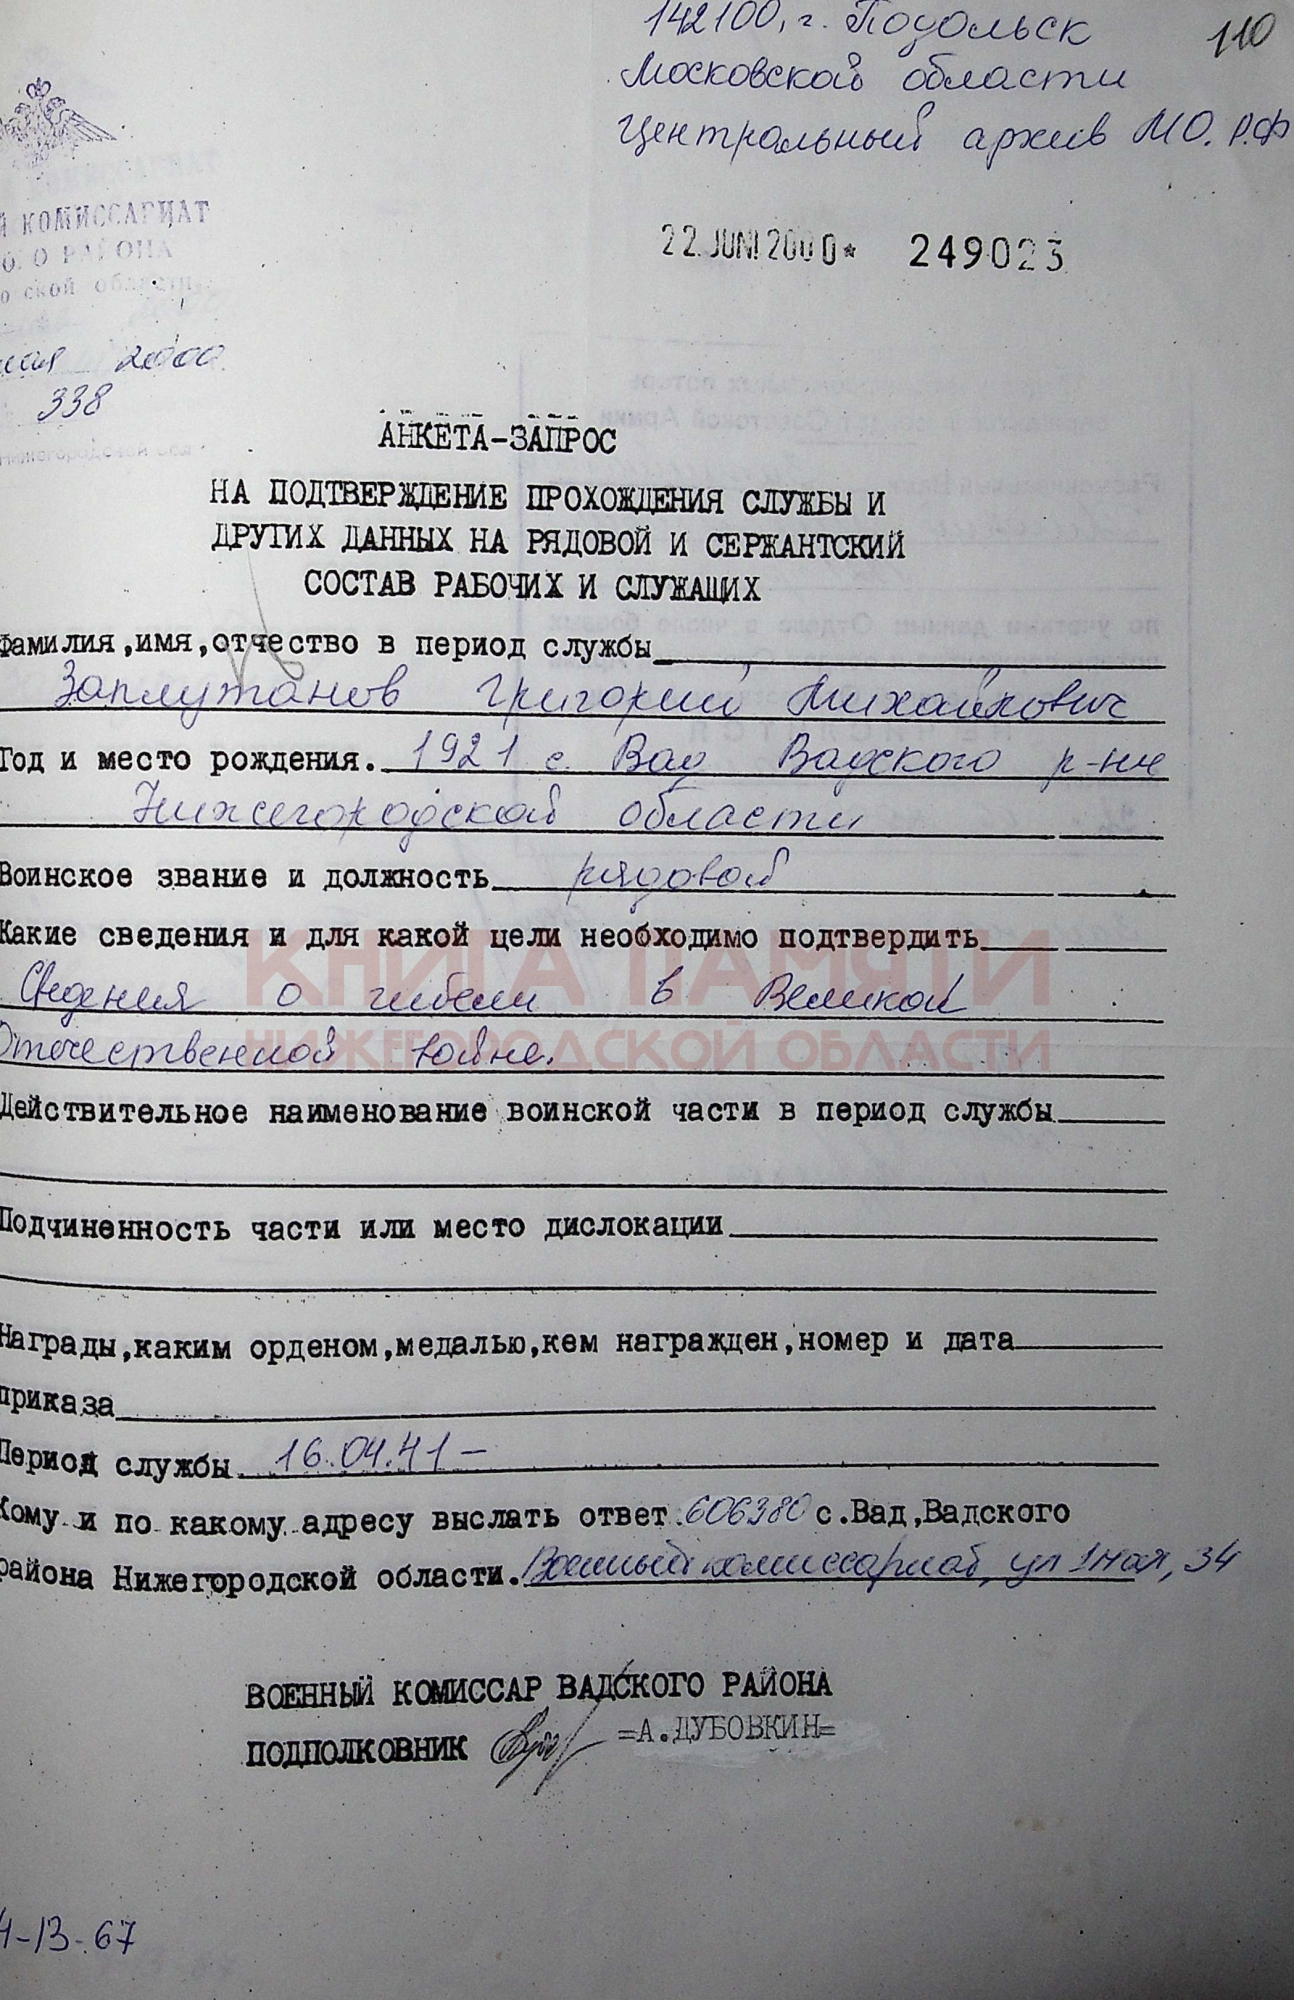 142100, г. Подольск
110
Московской области
Центральный архив МО. Р.Ф
КОМИССАРИАТ
РАЙОНА
ской области
22. JUNI 2000 * 249023
2000
338
Нижегородской обл
АНКЕТА-ЗАПРОС
НА ПОДТВЕРЖДЕНИЕ ПРОХОЖДЕНИЯ СЛУЖБЫ И
ДРУГИХ ДАННЫХ НА РЯДОВОЙ И СЕРЖАНТСКИЙ
СОСТАВ РАБОЧИХ И СЛУЖАЩИХ
Фамилия,имя,отчество в период службы
Заплутанов Григорий Михайлович
Год и место рождения. 1921 с. Вад Вадского р-на
Нижегородской области
Воинское звание и должность рядовой
Какие сведения и для какой цели необходимо подтвердить
Сведения о гибели в Великой
Отечественной войне.
КНИГА ПАМЯТИ
НИЖЕГОРОДСКОЙ ОБЛАСТИ
Действительное наименование воинской части в период службы
Подчиненность части или место дислокации
Награды,каким орденом,медалью,кем награжден,номер и дата
приказа
Период службы 16.04.41 –
Кому и по какому адресу выслать ответ 606380 с.Вад,Вадского
района Нижегородской области. Военный комиссариат, ул 1 мая, 34
ВОЕННЫЙ КОМИССАР ВАДСКОГО РАЙОНА
ПОДПОЛКОВНИК =А.ДУБОВКИН=
4-13-67